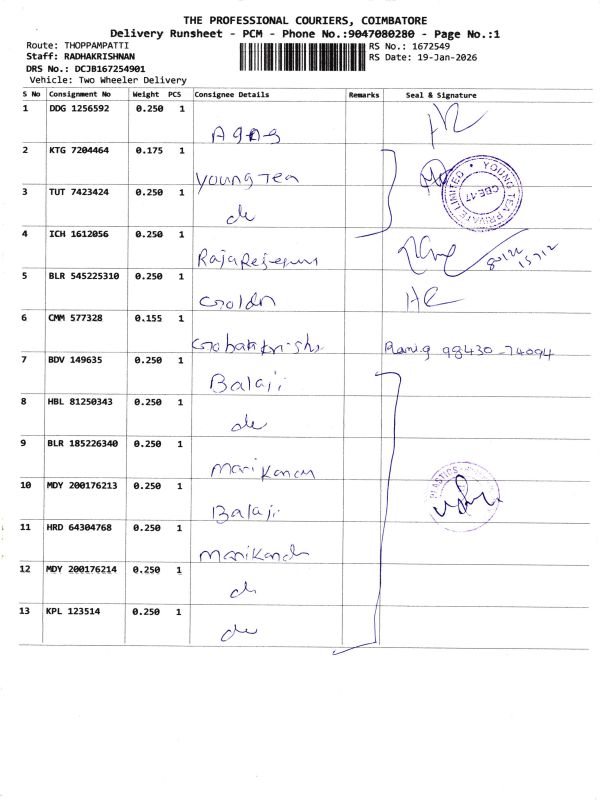 THE PROFESSIONAL COURIERS, COIMBATORE
Delivery Runsheet - PCM - Phone No.:9047080280 - Page No.:1
Route: THOPPAMPATTI
RS No.: 1672549
Staff: RADHAKRISHNAN
RS Date: 19-Jan-2026
DRS No.: DCJB167254901
Vehicle: Two Wheeler Delivery
S No Consignment No Weight PCS Consignee Details Remarks Seal & Signature
1 DDG 1256592 0.250 1
2 KTG 7204464 0.175 1
Young Tea
YOUNG TEA PRIVATE LIMITED
CBE-17
3 TUT 7423424 0.250 1
do
4 ICH 1612056 0.250 1
5 BLR 545225310 0.250 1
6 CMM 577328 0.155 1
98430-74094
7 BDV 149635 0.250 1
Balaji
8 HBL 81250343 0.250 1
do
9 BLR 185226340 0.250 1
10 MDY 200176213 0.250 1
Balaji
PLASTICS
11 HRD 64304768 0.250 1
12 MDY 200176214 0.250 1
do
13 KPL 123514 0.250 1
do